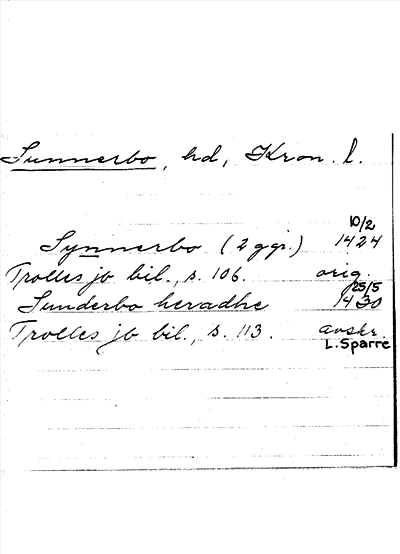 Sunnerbo, hd, Kron. l.
10/2
Synnerbo (2 ggr.) 1424
Trolles jb bil., s. 106. orig.
25/5
Sunderbo heradhe 1430
Trolles jb bil., s. 113. avskr.
L. Sparre